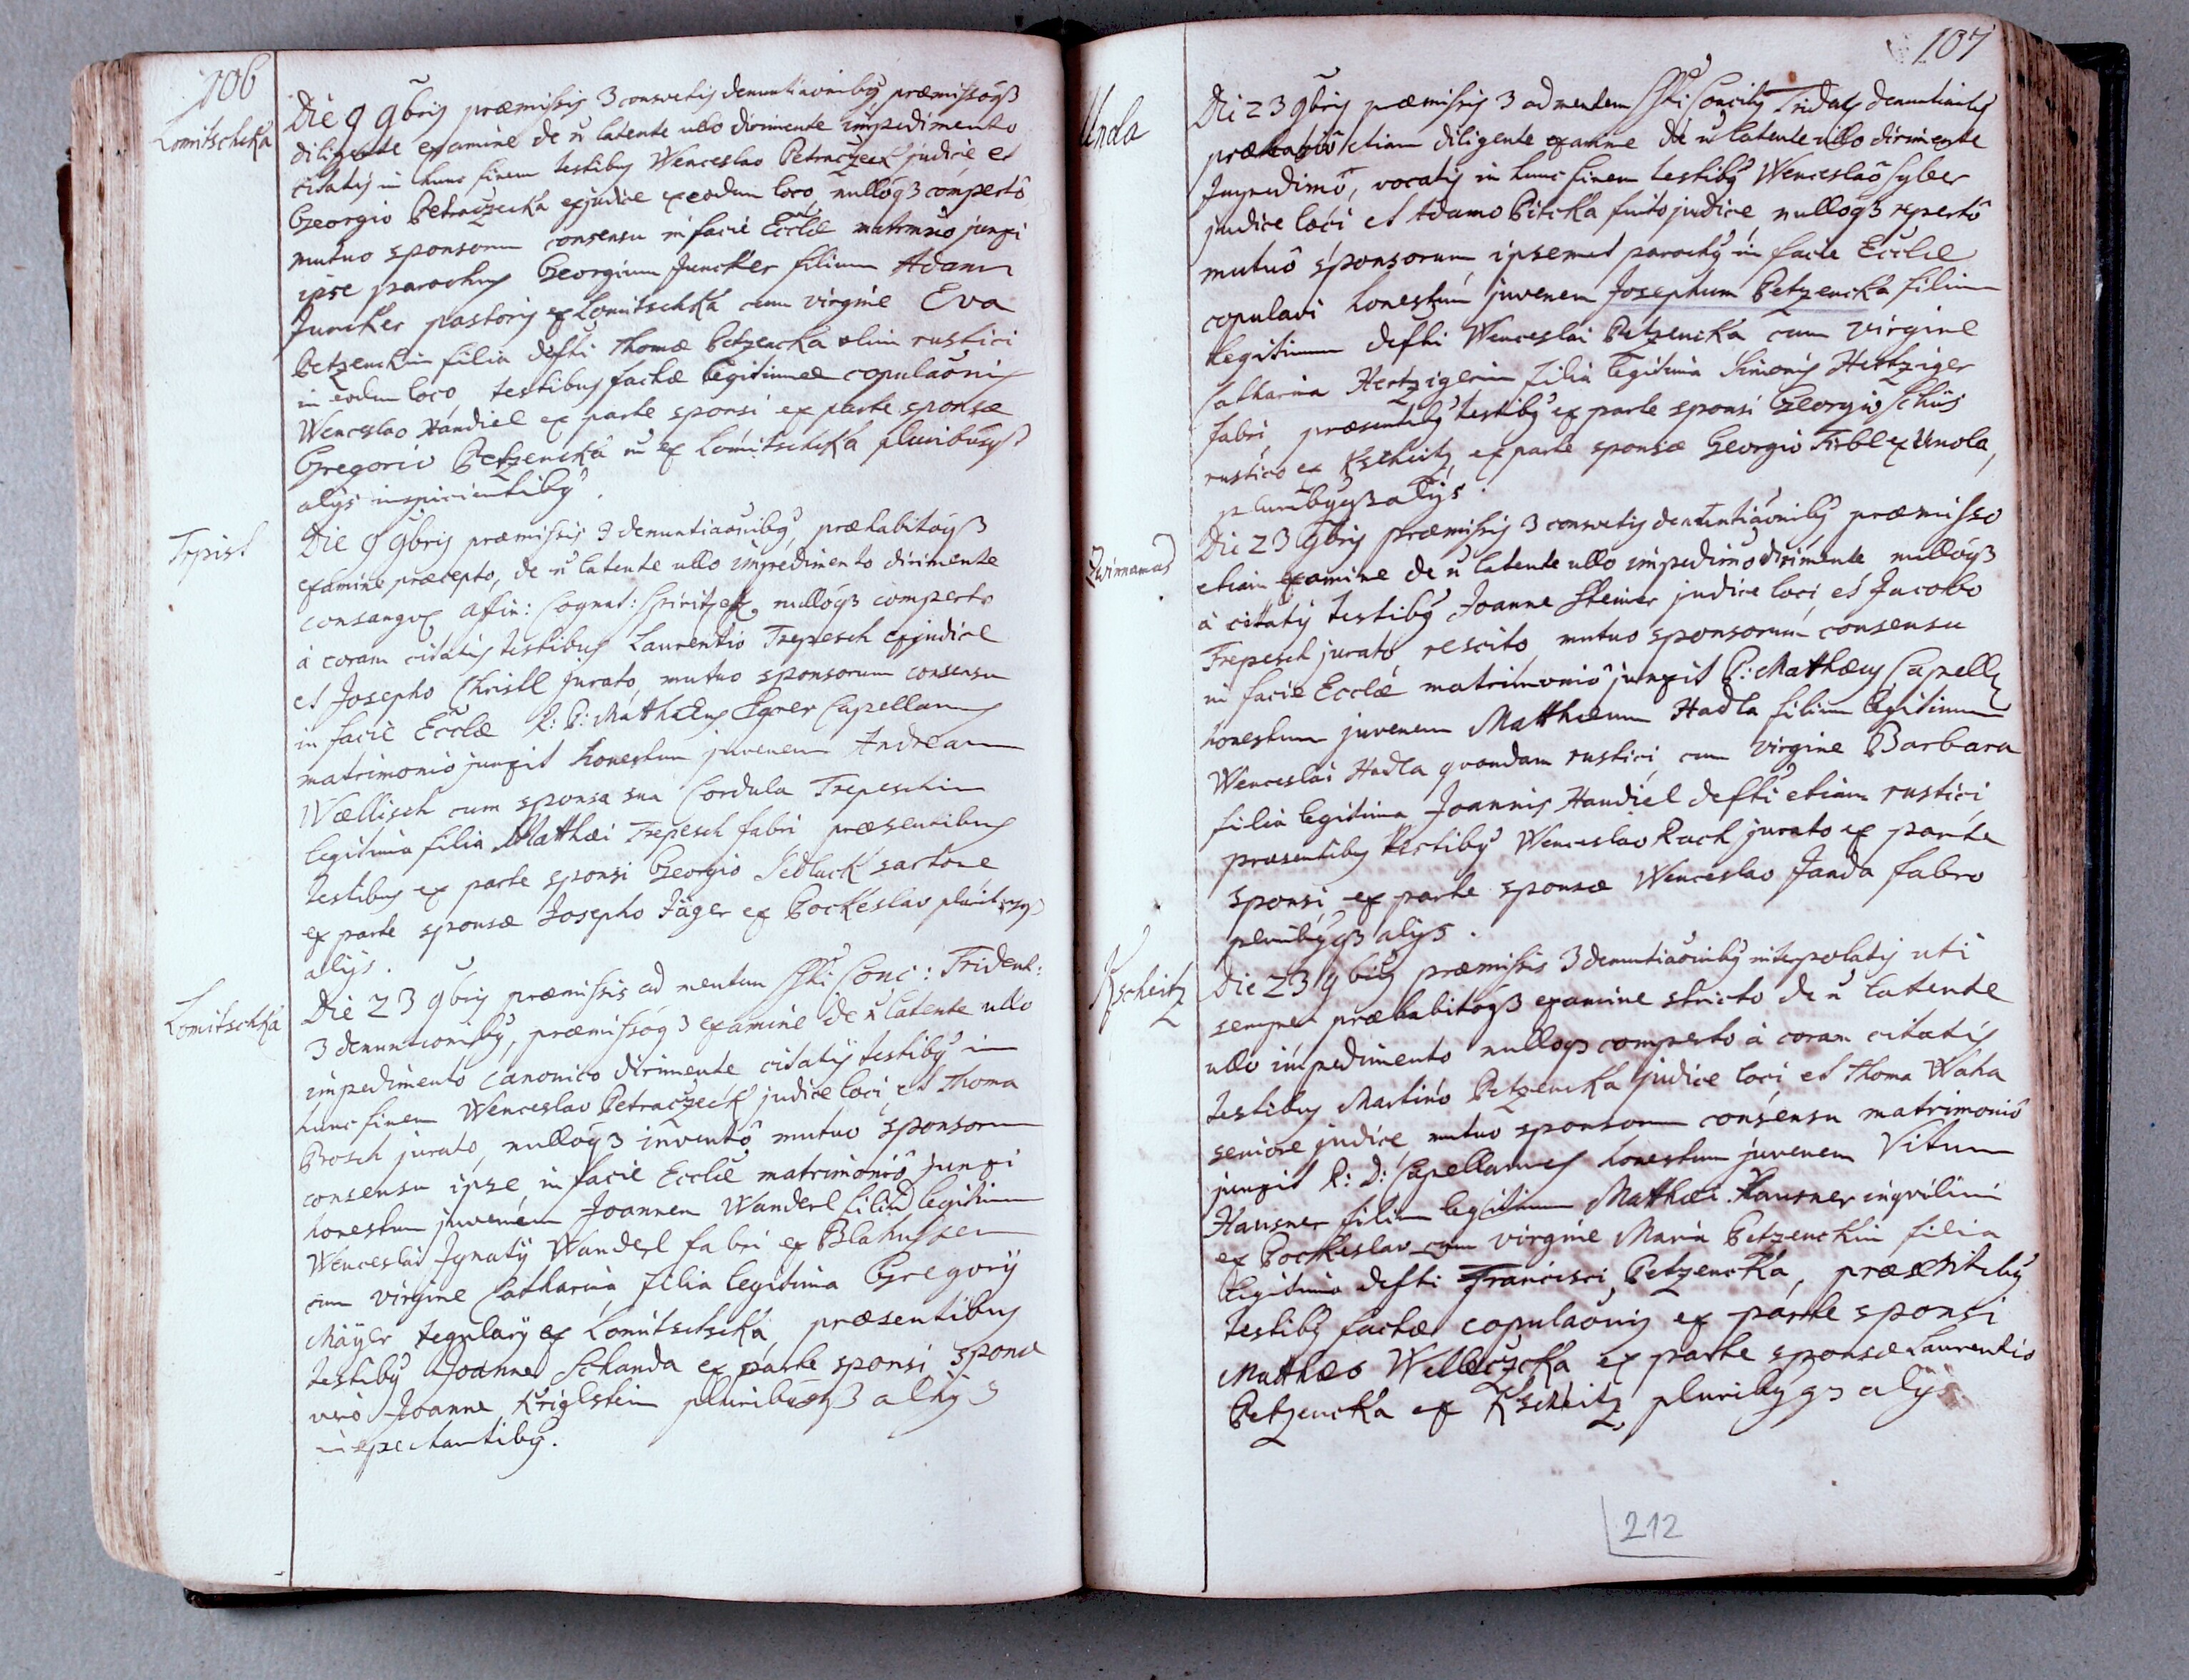 106
Lomitschka
Die 9 9bris præmissis 3 consvetis denuntiaõnibq præmissoqз
diligente examine de ñ latente ullo dirimente impedimento
citatis in hunc finem testibus Wenceslao Petraczeck judice et
Georgio Petraczecka exjudice ex eodem loco, nulloqз compertô
mutuo sponsorum consensu in facie Ecclæ matrimõio junxi
ipse parochus Georgium Juncker filium Adami
Juncker pastoris ex Lomitschka cum virgine Eva
Petzenckin filia defti Thomæ Petzencka olim rustici
in eodem loco, testibus factæ legitimæ copulaõnis
Wenceslao Handiel ex parte sponsi ex parte sponsæ
Gregorio Petzencka ex Lomitschka pluribusqз
alijs inspicientibq.
Trpist
Die 9 9bris præmissis 3 denuntiaõnibq, præhabitoqз
examine præcepto, de ñ latente ullo impedimento dirimente
consangv: affin: Cognat: Spirit: etz. nulloqз comperto
à coram citatis testibus Laurentio Trepesch exjudice
et Josepho Christl jurato, mutuo sponsorum consensu
in facie Ecclæ R: P: Mathæus Egner Capellanus
matrimonio junxit honestum juvenem Andream
Wællisch cum sponsa sua Cordula Trepeschin
legitima filia Matthæi Trepesch fabri præsentibus
testibus ex parte sponsi Georgio Sedlack sartore
ex parte sponsæ Josepho Jäger ex Pockeslav pluribusqз
alijs.
Lomitschka
Die 23 9bris præmissis ad mentem SSti Conc: Trident:
3 denuntionibq, præmissoqз examine de ñ latente ullo
impedimento canonico dirimente citatis testibq in
hunc finem Wenceslao Petraczeck judice loci, et Thoma
Prosch jurato, nulloqз inventô mutuo sponsorum
consensu ipse, in facie Ecclæ matrimoniô junxi
honestum juvenem Joannem Wanderl filium legitimum
Wenceslai Ignatij Wanderl fabri ex Blahussen
cum virgine Catharina, filia legitima Gregorij
Mäyer tegularij ex Lomitschka, præsentibus
testibq Joanne Schanda ex parte sponsi, sponsæ
verò Joanne Kriglstein pluribusqз alijs
inspectantibq.
107
Unola
Die 23 9bris præmissis 3 ad mentem SSti Concilij Trid: denuntiantibq
præhabitô etiam diligente examine de ñ latente ullo dirimente
Impedimô, vocatis in hunc finem testibq Wenceslaô Syber
judice loci et Adamo Pitcka finito judice, nulloqз repertô
mutuô sponsorum, ipsemet parochq in facie Ecclæ
copulavi honestum juvenem Josephum Petzencka filium
legitimum defti Wenceslai Petzencka cum virgine
Catharina Hertzigerin filia legitima Simonis Hertziger
fabri, præsentibq testibq ex parte sponsi Georgio
rustico ex Kscheitz, ex parte sponsæ Georgio Tirbl ex Unola,
pluribqqз alijs.
Zwinnamas
Die 23 9bris præmissis 3 consvetis denuntiaõnibq præmisso
etiam examine de ñ latente ullo impedimõ dirimente nulloqз
à citatis testibq Joanne Steiner judice loci, et Jacobo
Trepesch jurato, rescito, mutuo sponsorum consensu
in facie Ecclæ matrimoniô junxit P: Mathæus Capell
honestum juvenem Matthæum Hadla filium legitimum
Wenceslai Hadla quondam rustici, cum virgine Barbara
filia legitima Joannis Handiel defti etiam rustici,
præsentibus testibq Wenceslao Rach jurato ex parte
sponsi, ex parte sponsæ Wenceslao Janda fabro
pluribqqз alijs.
Kscheitz
Die 23 9bris præmissis 3 denuntiaõnibq interpolatis uti
semper præhabitoqз examine stricto de ñ latente
ullo impedimento nulloqз comperto à coram citatis
testibus Martino Petzencka judice loci, et Thoma Waha
seniore judice, mutuo sponsorum consensu matrimoniô
junxit R: D: Capellanus honestum juvenem Vitum
Hausner filium legitimum Matthæi Hausner inqvilini
ex Pockeslav cum virgine Maria Petzenckin filia
legitima defti Francisci Petzencka, præsentibq
testibq factæ copulaõnis ex parte sponsi
Matthæo Welleczcka ex parte sponsæ Laurentio
Petzencka ex Kscheitz, pluribqqз alijs.
212